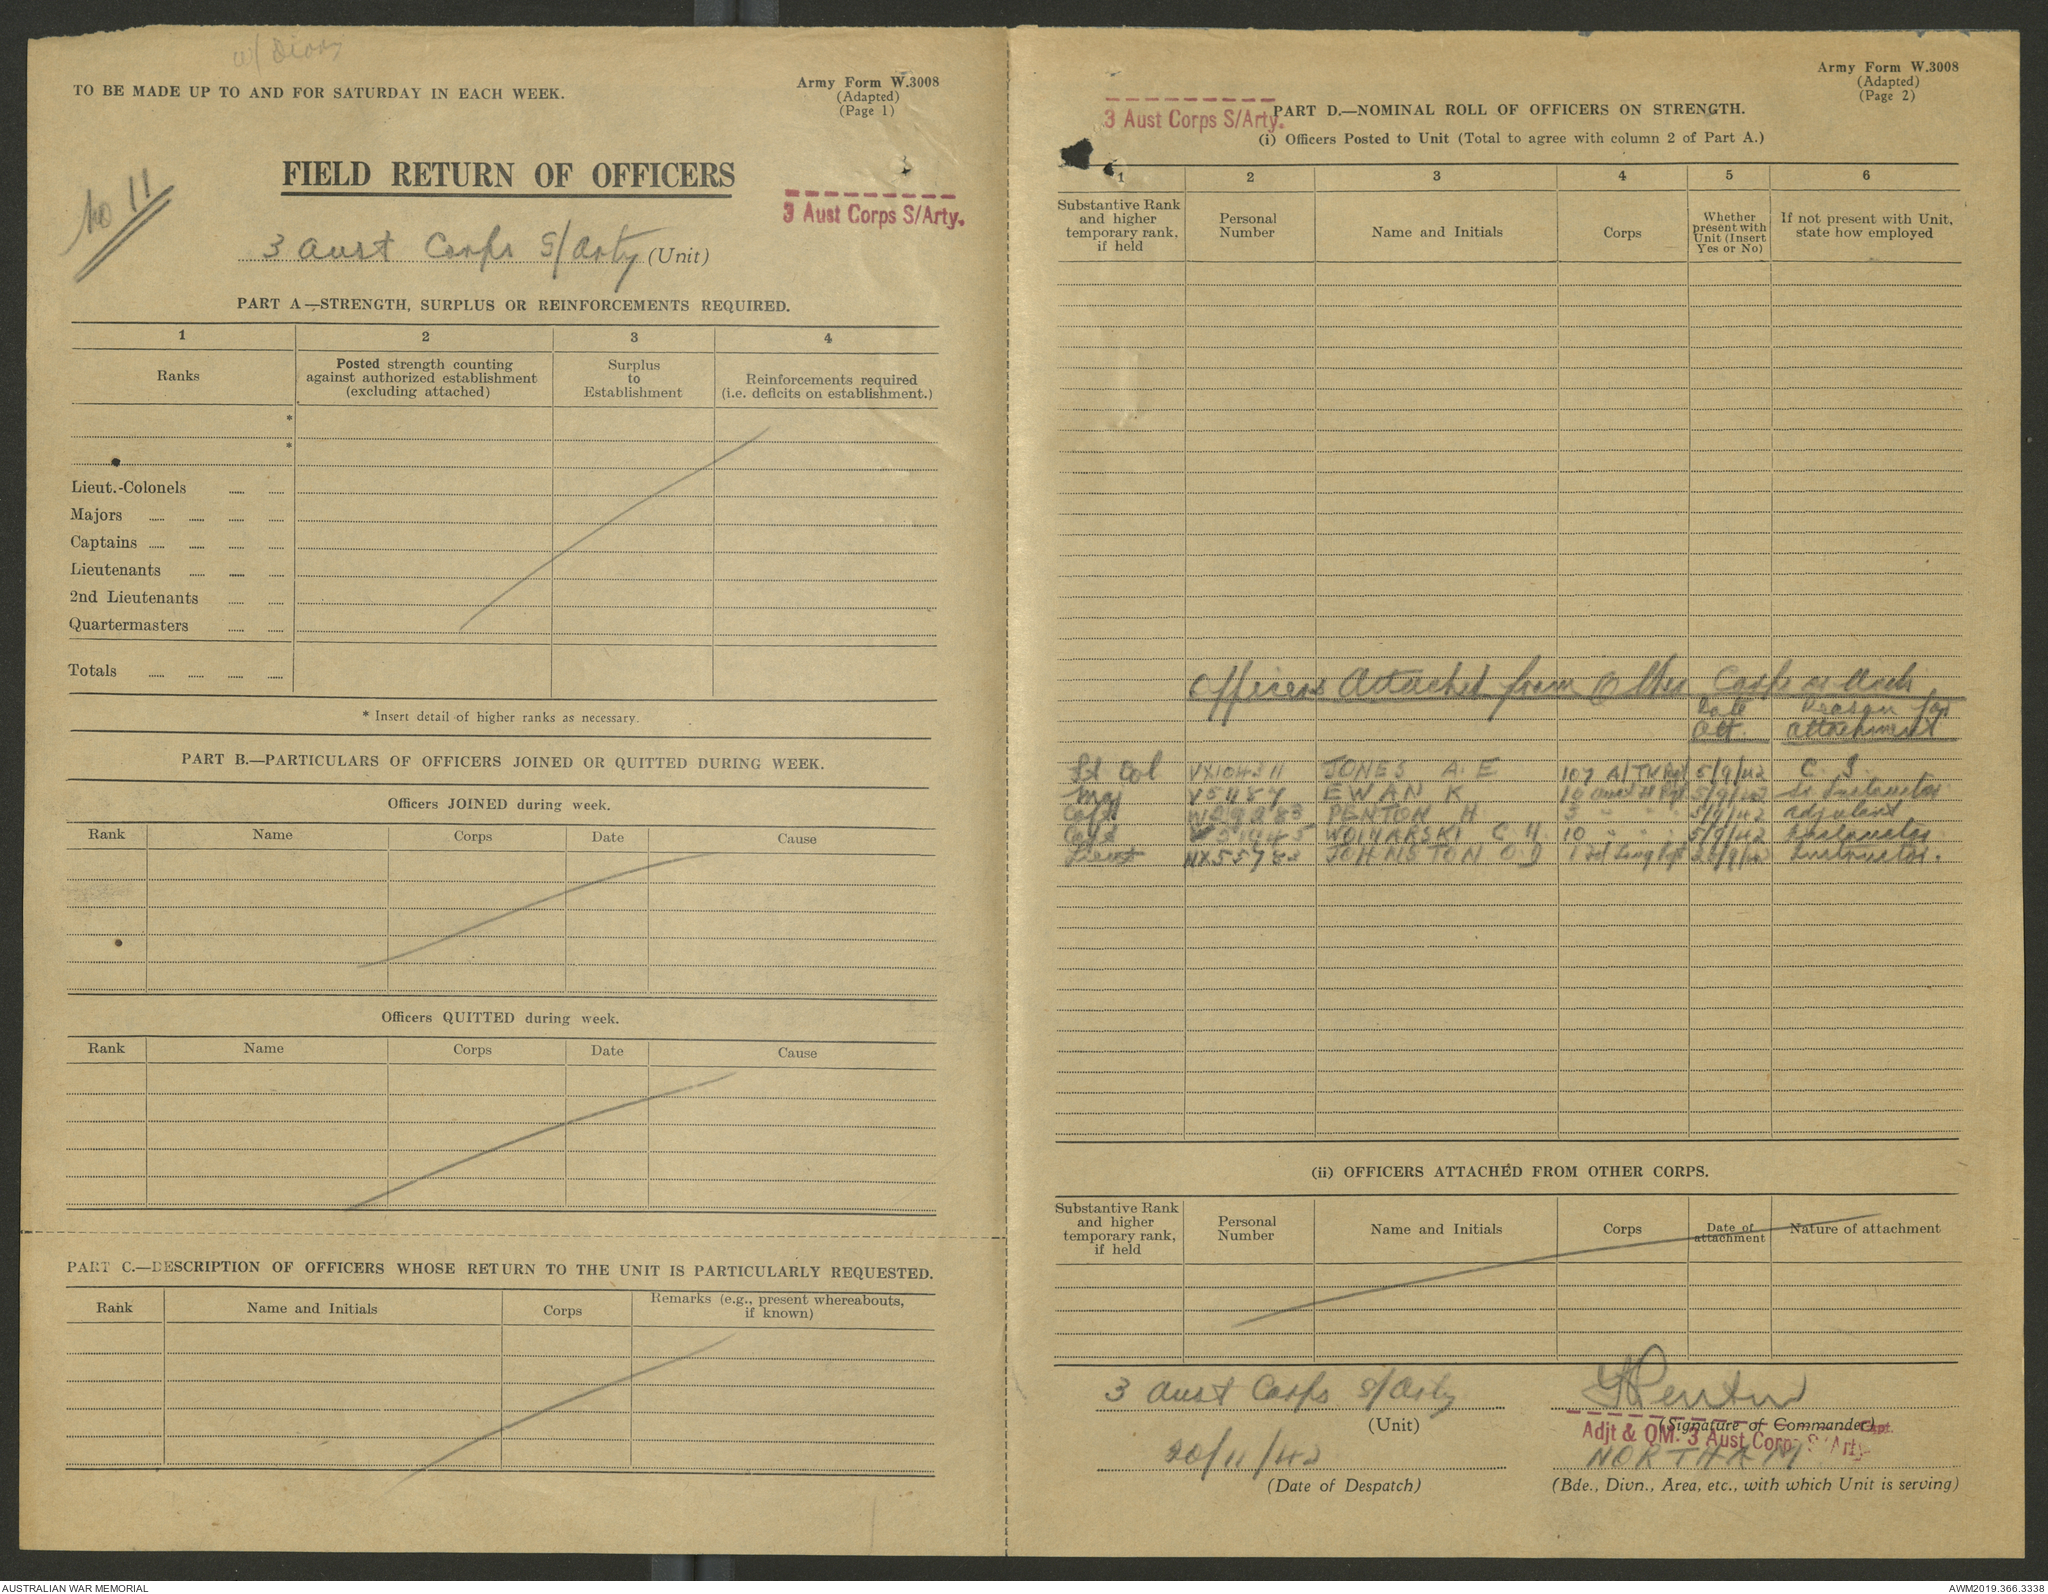 w/ Diary
TO BE MADE UP TO AND FOR SATURDAY IN EACH WEEK.
Army Form W.3008
(Adapted)
(Page 1)
No 11
FIELD RETURN OF OFFICERS
3 Aust Corps S/Arty.
3 Aust Corps S/Arty (Unit)
PART A—STRENGTH, SURPLUS OR REINFORCEMENTS REQUIRED.
1 2 3 4
Ranks
Posted strength counting against authorized establishment (excluding attached)
Surplus to Establishment
Reinforcements required (i.e. deficits on establishment.)
*
*
Lieut.-Colonels
Majors
Captains
Lieutenants
2nd Lieutenants
Quartermasters
Totals
* Insert detail of higher ranks as necessary.
PART B.—PARTICULARS OF OFFICERS JOINED OR QUITTED DURING WEEK.
Officers JOINED during week.
Rank Name Corps Date Cause
Officers QUITTED during week.
Rank Name Corps Date Cause
PART C.—DESCRIPTION OF OFFICERS WHOSE RETURN TO THE UNIT IS PARTICULARLY REQUESTED.
Rank Name and Initials Corps Remarks (e.g., present whereabouts, if known)
Army Form W.3008
(Adapted)
(Page 2)
3 Aust Corps S/Arty.
PART D.—NOMINAL ROLL OF OFFICERS ON STRENGTH.
(i) Officers Posted to Unit (Total to agree with column 2 of Part A.)
1 2 3 4 5 6
Substantive Rank and higher temporary rank, if held
Personal Number
Name and Initials
Corps
Whether present with Unit (Insert Yes or No)
If not present with Unit, state how employed
Officers Attached from Other Corps or Arch
Date Reason for
Att. attachment
Lt Col VX104311 JONES A. E 107 A/TK Rgt 5/9/42 C. I.
Maj V51187 EWAN K 10 5/9/42 Sr Instructor
Capt PENTON H 3 " " 5/9/42 Adjutant
Capt WOINARSKI C. H. 10 " " 5/9/42 Instructor
Lieut JOHNSTON O. J Instructor.
(ii) OFFICERS ATTACHED FROM OTHER CORPS.
Substantive Rank and higher temporary rank, if held
Personal Number
Name and Initials
Corps
Date of attachment
Nature of attachment
3 Aust Corps S/Arty
(Unit)
HPenton
(Signature of Commander)
Capt.
Adjt & QM. 3 Aust Corps S/Arty
20/11/42
(Date of Despatch)
NORTHAM
(Bde., Divn., Area, etc., with which Unit is serving)
AUSTRALIAN WAR MEMORIAL
AWM2019.366.3338